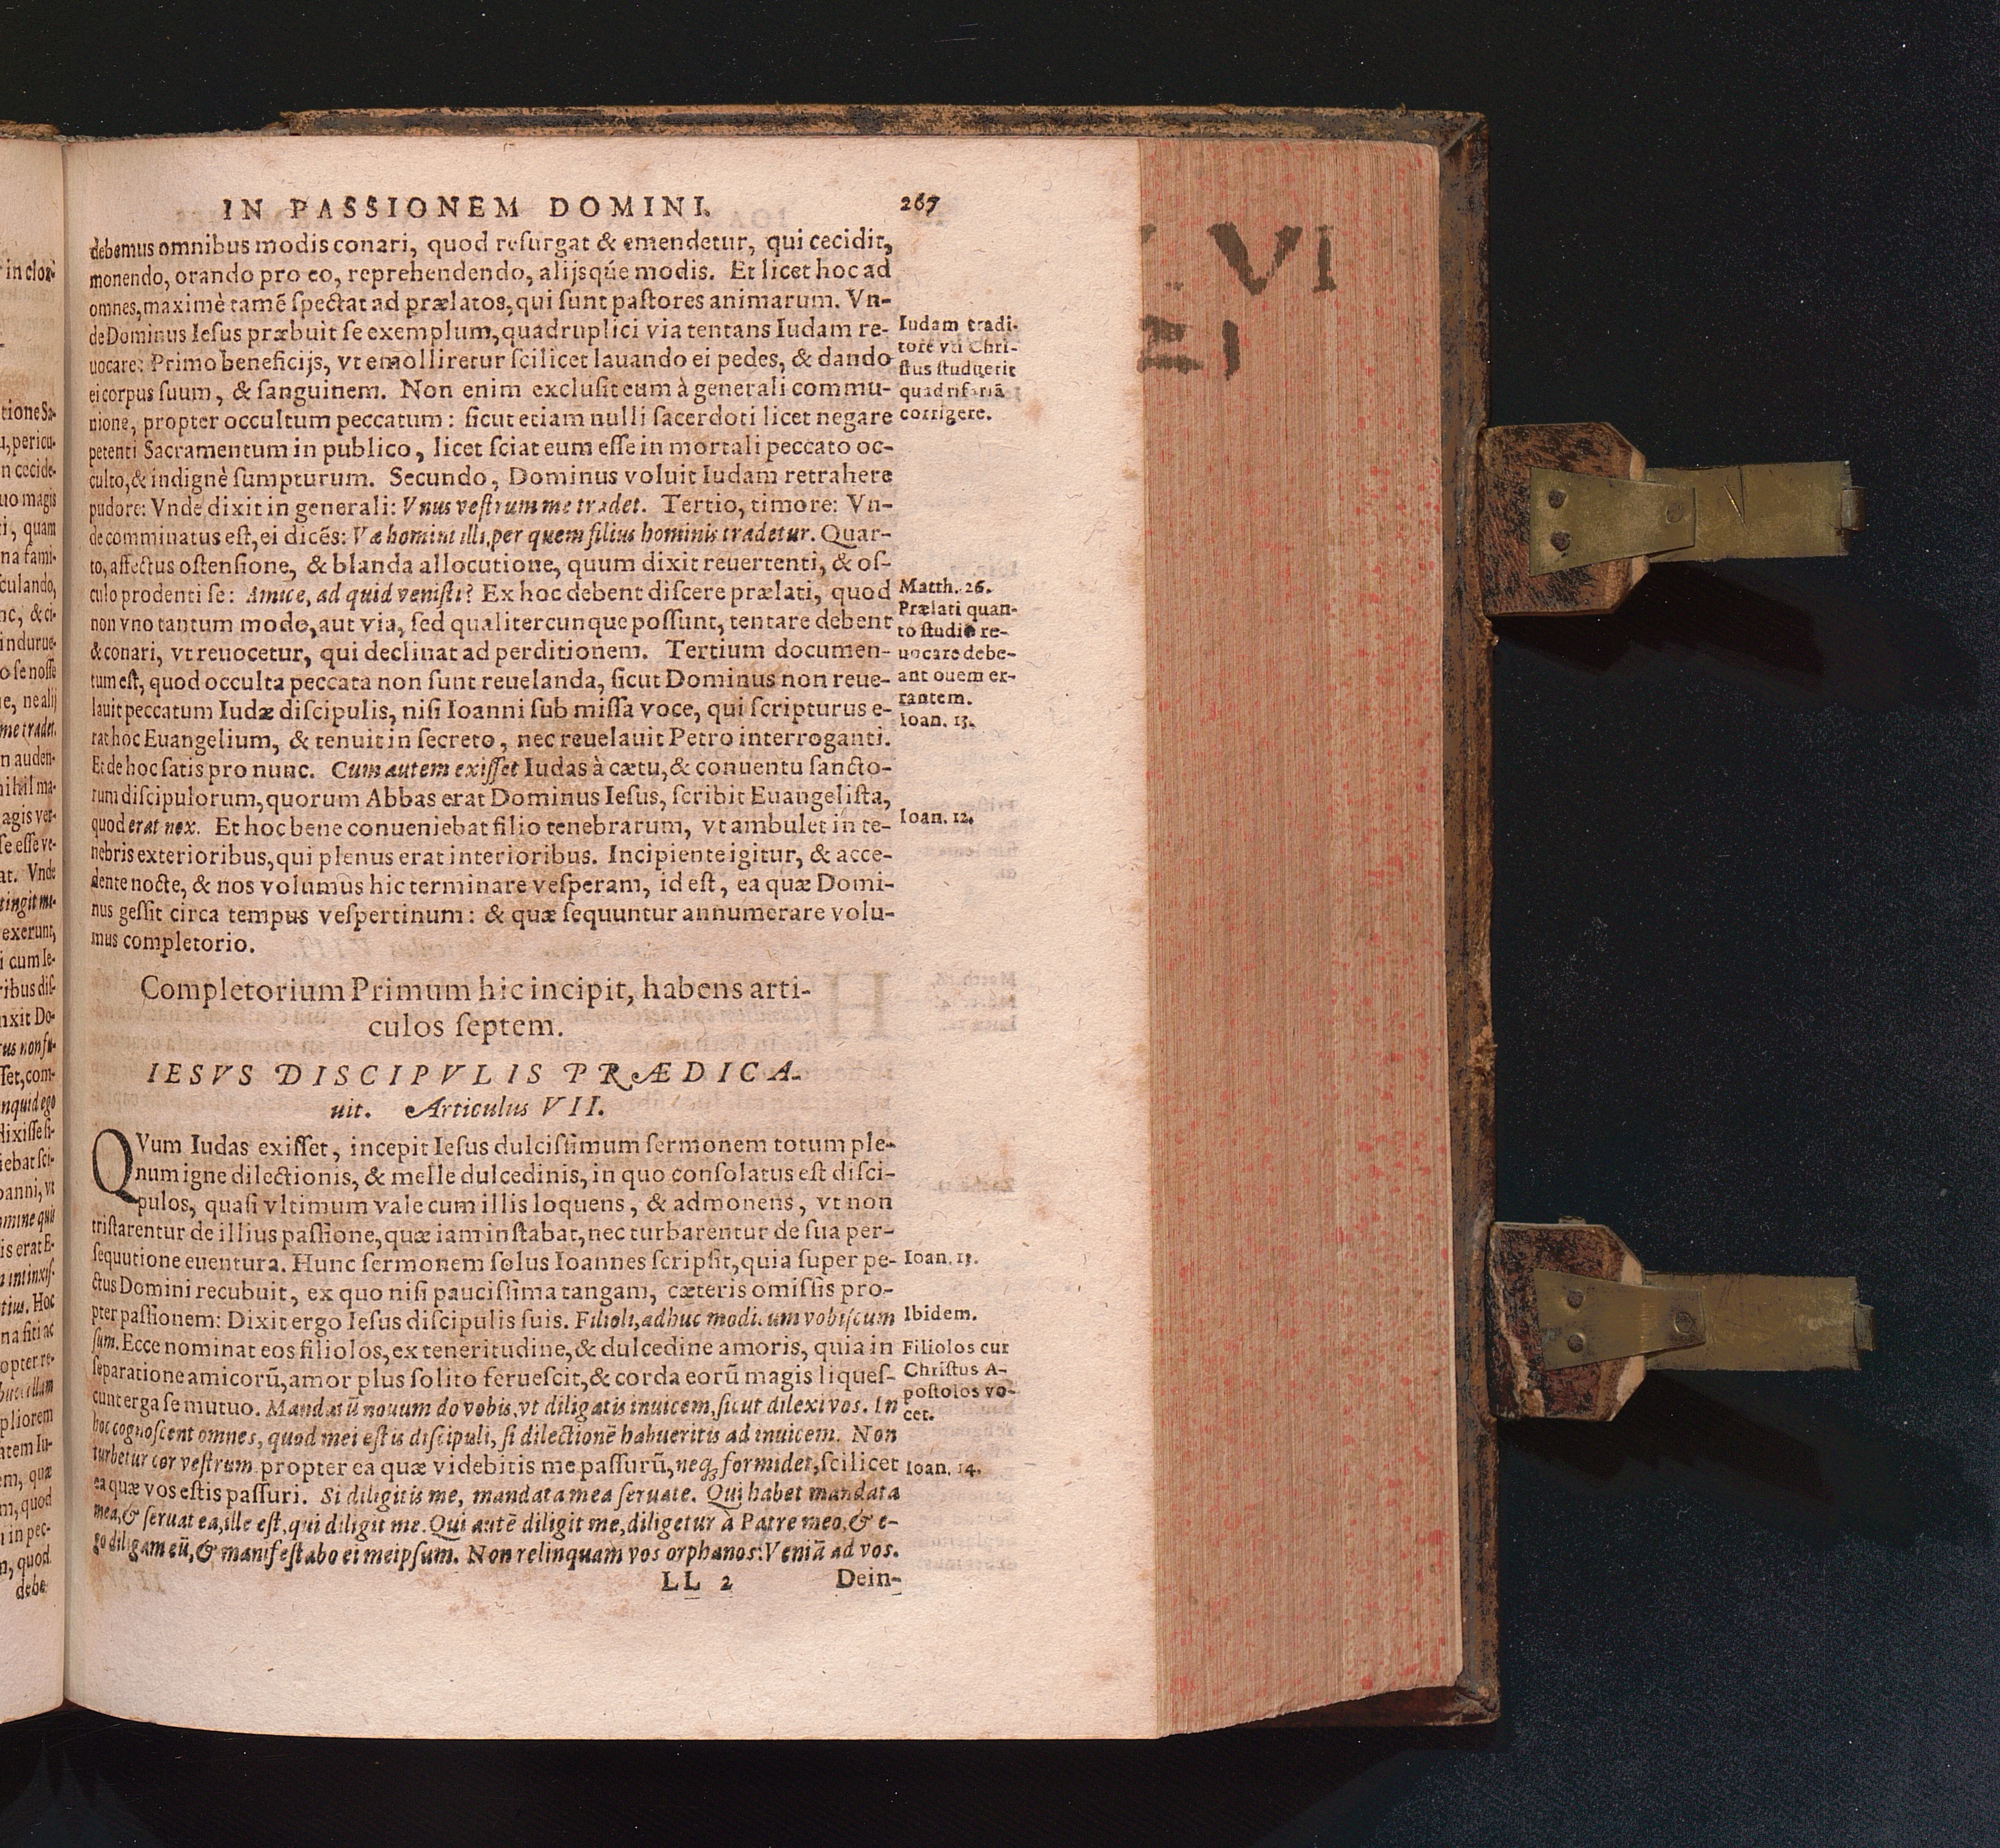 IN PASSIONEM DOMINI. 267
debemus omnibus modis conari, quod resurgat & emendetur, qui cecidit,
monendo, orando pro eo, reprehendendo, alijsqúe modis. Et licet hoc ad
omnes, maximè tamē spectat ad prælatos, qui sunt pastores animarum. Vn-
de Dominus Iesus præbuit se exemplum, quadruplici via tentans Iudam re-
uocare: Primo beneficijs, vt emolliretur scilicet lauando ei pedes, & dando
ei corpus suum, & sanguinem. Non enim exclusit eum à generali commu-
nione, propter occultum peccatum: sicut etiam nulli sacerdoti licet negare
petenti Sacramentum in publico, licet sciat eum esse in mortali peccato oc-
culto, & indignè sumpturum. Secundo, Dominus voluit Iudam retrahere
pudore: Vnde dixit in generali: Vnus vestrum me tradet. Tertio, timore: Vn-
de comminatus est, ei dicēs: Væ homini illi, per quem filius hominis tradetur. Quar-
to, affectus ostensione, & blanda allocutione, quum dixit reuertenti, & os-
culo prodenti se: Amice, ad quid venisti? Ex hoc debent discere prælati, quod
non vno tantum modo, aut via, sed qualitercunque possunt, tentare debent
& conari, vt reuocetur, qui declinat ad perditionem. Tertium documen-
tum est, quod occulta peccata non sunt reuelanda, sicut Dominus non reue-
lauit peccatum Iudæ discipulis, nisi Ioanni sub missa voce, qui scripturus e-
rat hoc Euangelium, & tenuit in secreto, nec reuelauit Petro interroganti.
Et de hoc satis pro nunc. Cum autem exisset Iudas à cætu, & conuentu sancto-
rum discipulorum, quorum Abbas erat Dominus Iesus, scribit Euangelista,
quod erat nox. Et hoc bene conueniebat filio tenebrarum, vt ambulet in te-
nebris exterioribus, qui plenus erat interioribus. Incipiente igitur, & acce-
dente nocte, & nos volumus hic terminare vesperam, id est, ea quæ Domi-
nus gessit circa tempus vespertinum: & quæ sequuntur annumerare volu-
mus completorio.
Iudam tradi-
torē vti Chri-
stus studuerit
quadrifariā
corrigere.
Matth. 26.
Prælati quan-
to studio re-
uocare debe-
ant ouem er-
rantem.
Ioan. 13.
Ioan. 12.
Completorium Primum hic incipit, habens arti-
culos septem.
IESVS DISCIPVLIS PRÆDICA-
uit. Articulus VII.
QVum Iudas exisset, incepit Iesus dulcissimum sermonem totum ple-
num igne dilectionis, & melle dulcedinis, in quo consolatus est disci-
pulos, quasi vltimum vale cum illis loquens, & admonens, vt non
tristarentur de illius passione, quæ iam instabat, nec turbarentur de sua per-
sequutione euentura. Hunc sermonem solus Ioannes scripsit, quia super pe-
ctus Domini recubuit, ex quo nisi paucissima tangam, cæteris omissis pro-
pter passionem: Dixit ergo Iesus discipulis suis. Filioli, adhuc modicum vobiscum
sum. Ecce nominat eos filiolos, ex teneritudine, & dulcedine amoris, quia in
separatione amicorū, amor plus solito feruescit, & corda eorū magis liques-
cunt erga se mutuo. Mandatū nouum do vobis, vt diligatis inuicem, sicut dilexi vos. In
hoc cognoscent omnes, quod mei estis discipuli, si dilectionē habueritis ad inuicem. Non
turbetur cor vestrum propter ea quæ videbitis me passurū, neq; formidet, scilicet
ea quæ vos estis passuri. Si diligitis me, mandata mea seruate. Qui habet mandata
mea, & seruat ea, ille est, qui diligit me. Qui autē diligit me, diligetur à Patre meo, & e-
go diligam eū, & manifestabo ei meipsum. Non relinquam vos orphanos: Veniā ad vos.
Ioan. 13.
Ibidem.
Filiolos cur
Christus A-
postolos vo-
cet.
Ioan. 14.
LL 2 Dein-
VI
E,
in cloa-
tione Sa-
u, pericu-
n cecide-
uo magis
ti, quam
na fami-
culando,
nc, & ci-
indurue-
o se nosse
e, ne alij
me tradet.
n auden-
nihil ma-
agis ver-
se esse ve-
at. Vnde
tingit ma-
exerunt,
i cum Ie-
ribus dis-
nxit Do-
tus non fu-
set, com-
nquid ego
dixisse si-
iebat sci-
oanni, vt
omine quis
is erat E-
n intinxis-
tius. Hoc
na siti ac
opter re-
buccellam
pliorem
atem Iu-
em, quæ
m, quod
i in pec-
n, quod
debe-